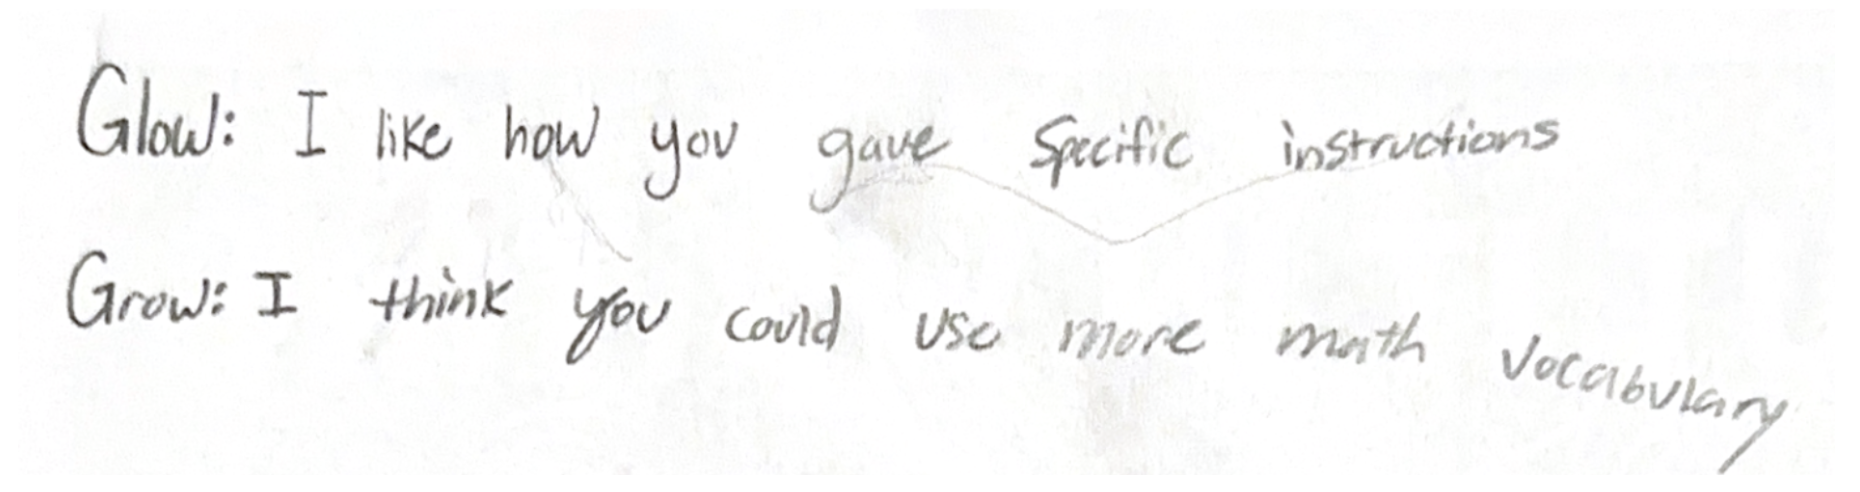 Glow: I like how you gave specific instructions
Grow: I think you could use more math vocabulary